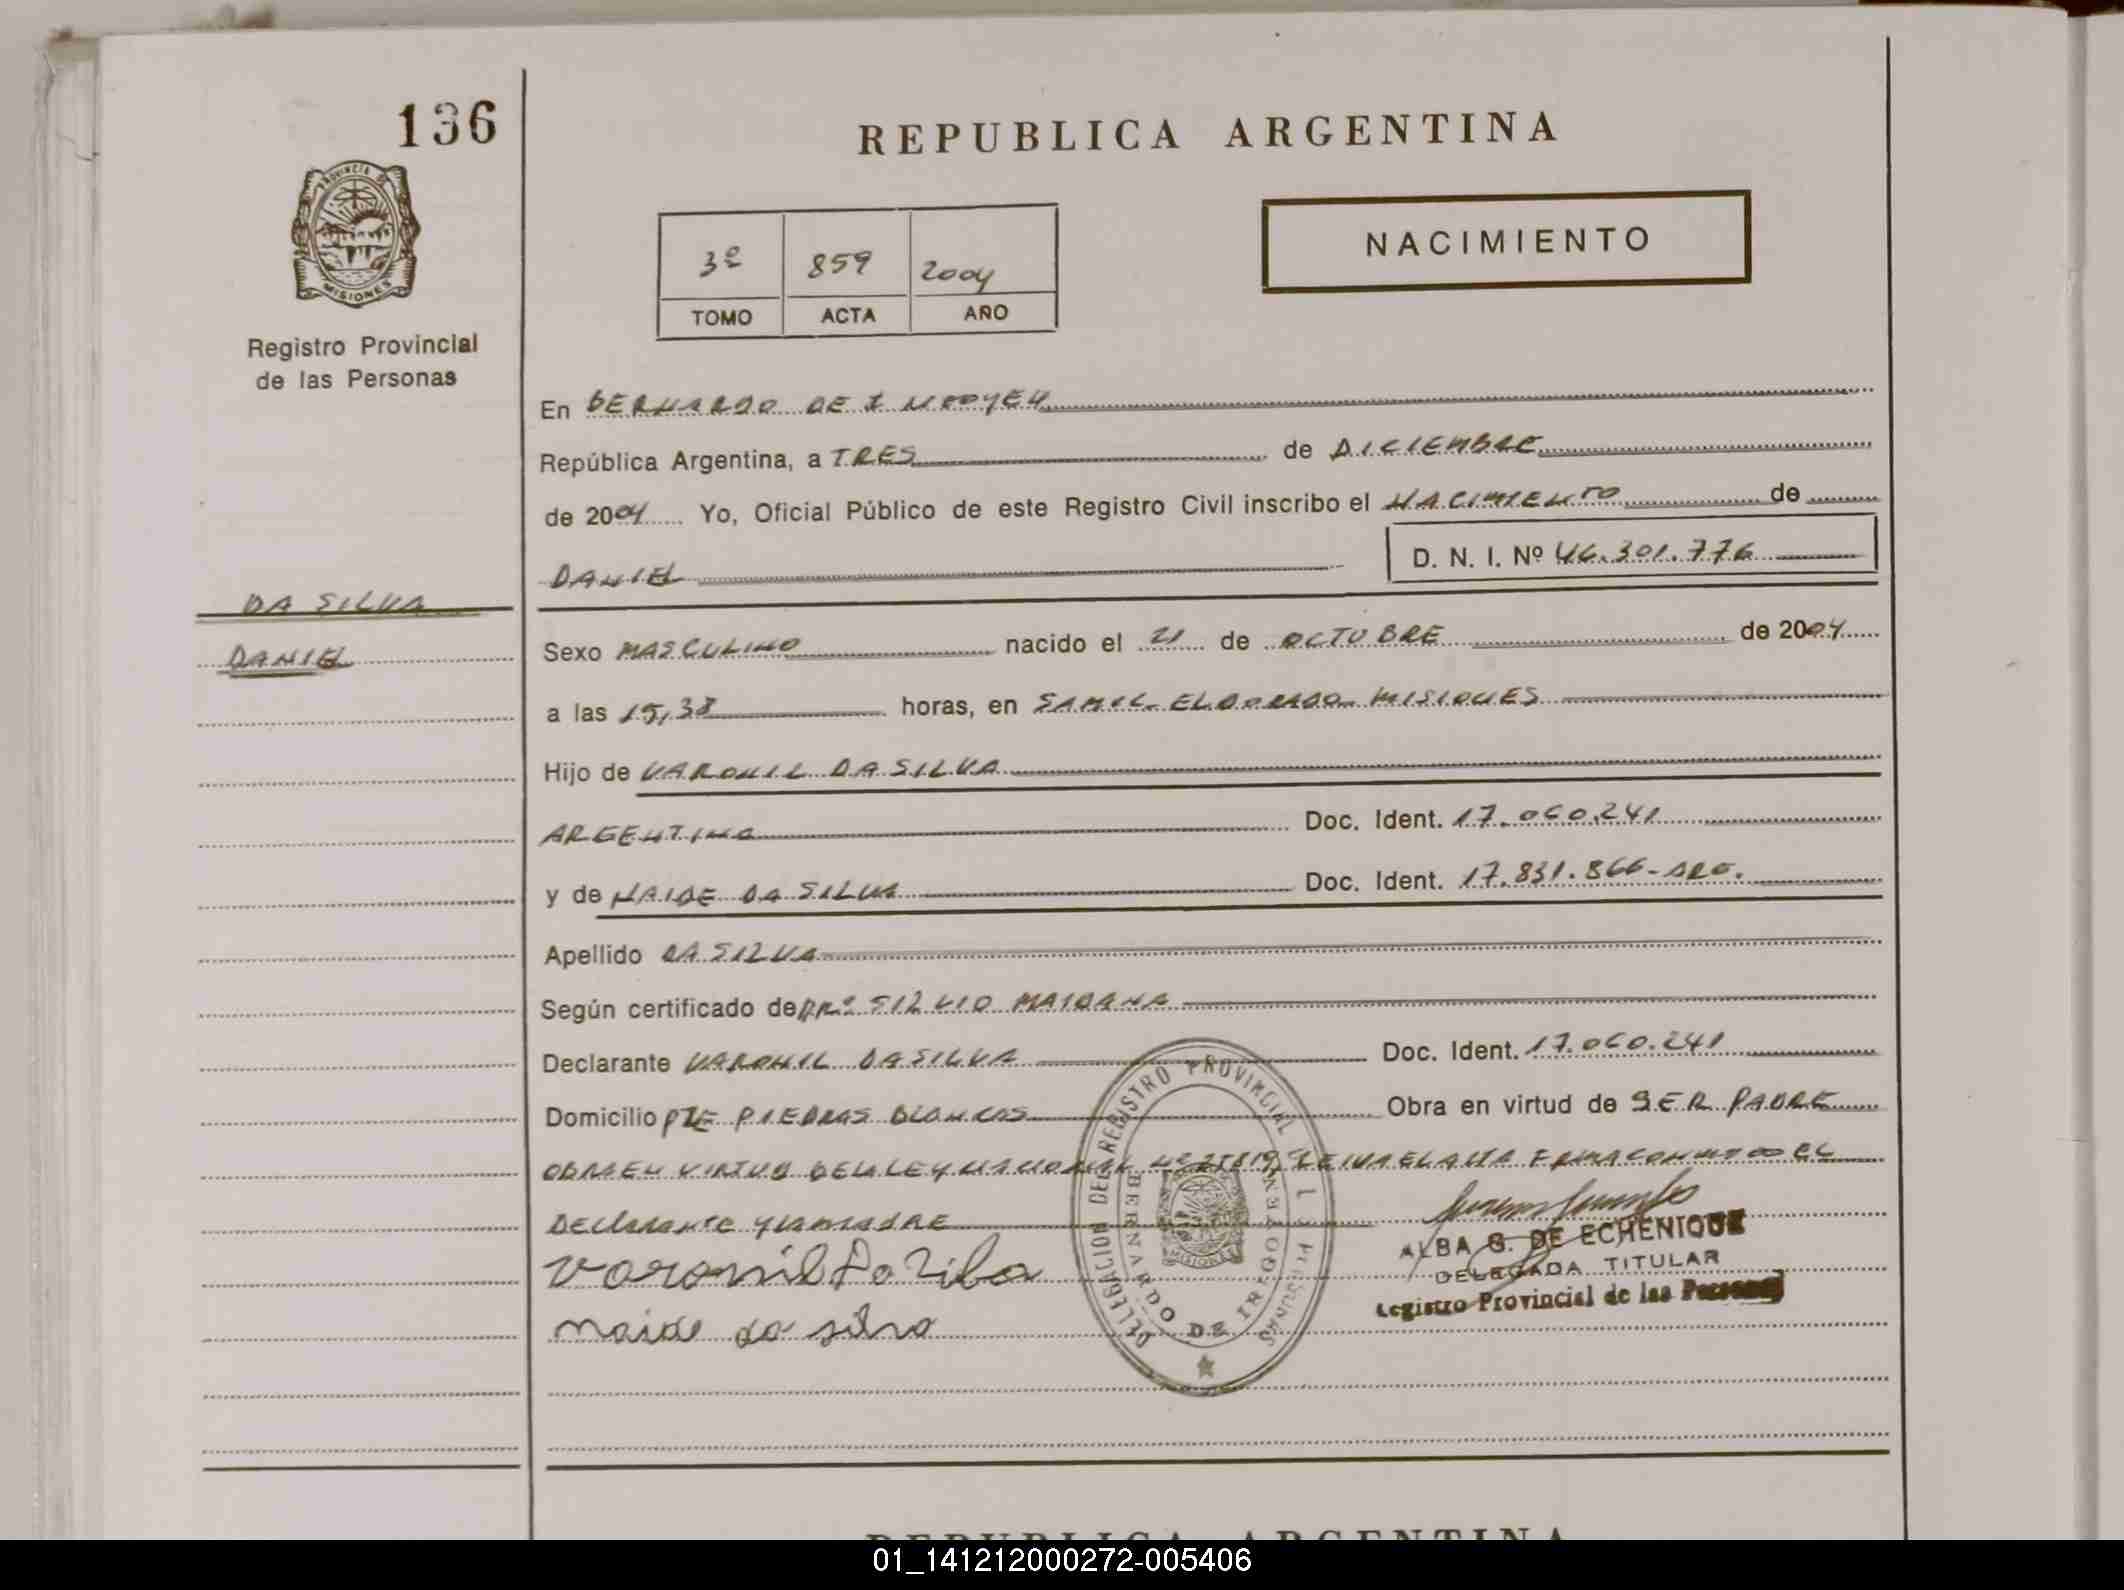 136
REPUBLICA ARGENTINA
PROVINCIA DE
MISIONES
Registro Provincial
de las Personas
3º 859 2004
TOMO ACTA AÑO
NACIMIENTO
En BERNARDO DE IRIGOYEN
República Argentina, a TRES de DICIEMBRE
de 2004 Yo, Oficial Público de este Registro Civil inscribo el NACIMIENTO de
DANIEL D. N. I. Nº 46.301.776
DA SILVA
DANIEL
Sexo MASCULINO nacido el 21 de OCTUBRE de 2004
a las 15,38 horas, en SAMIC ELDORADO MISIONES
Hijo de VARONIL DA SILVA
ARGENTINO Doc. Ident. 17.060.241
y de NAIDE DA SILVA Doc. Ident. 17.831.866-ARG.
Apellido DA SILVA
Según certificado de DR. SILVIO MAIDANA
Declarante VARONIL DA SILVA Doc. Ident. 17.060.241
Domicilio PJE PIEDRAS BLANCAS Obra en virtud de SER PADRE
OBRA EN VIRTUD DE LA LEY NACIONAL Nº 25819, LEIDA EL ACTA FIRMA CONMIGO EL
DECLARANTE Y LA MADRE
Varonil Da Silva
naide da silva
DELEGACION DEL REGISTRO PROVINCIAL DE LAS PERSONAS
BERNARDO DE IRIGOYEN
MISIONES
ALBA G. DE ECHENIQUE
DELEGADA TITULAR
Registro Provincial de las Personas
REPUBLICA ARGENTINA
01_141212000272-005406